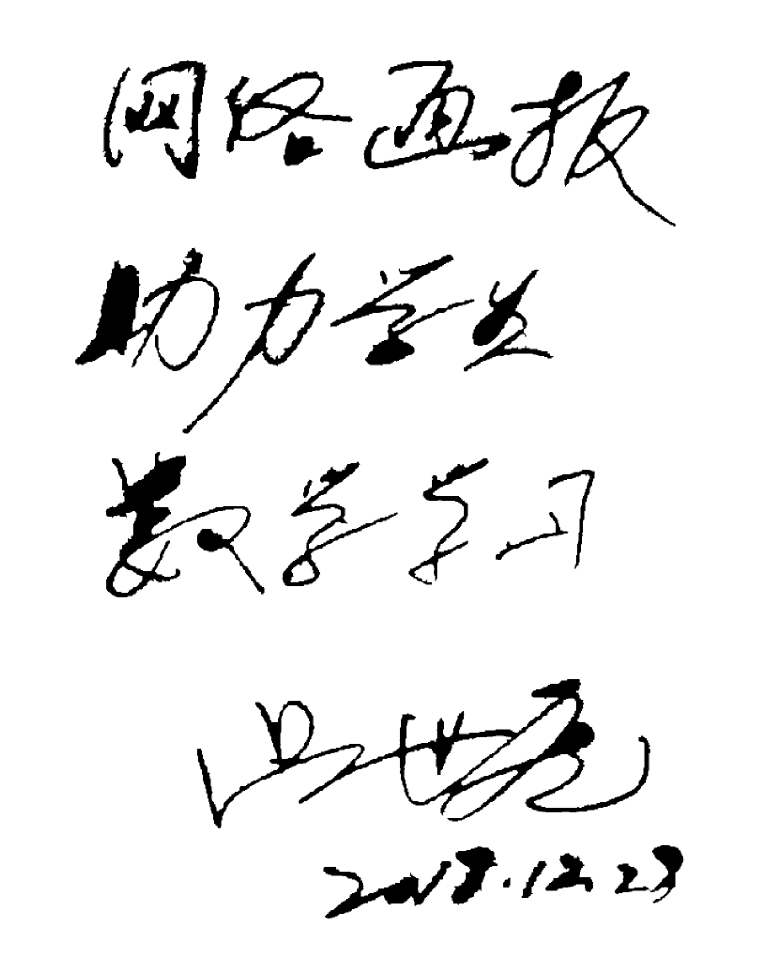 网络画板
助力学生
数学学习
吕世虎
2018.12.23